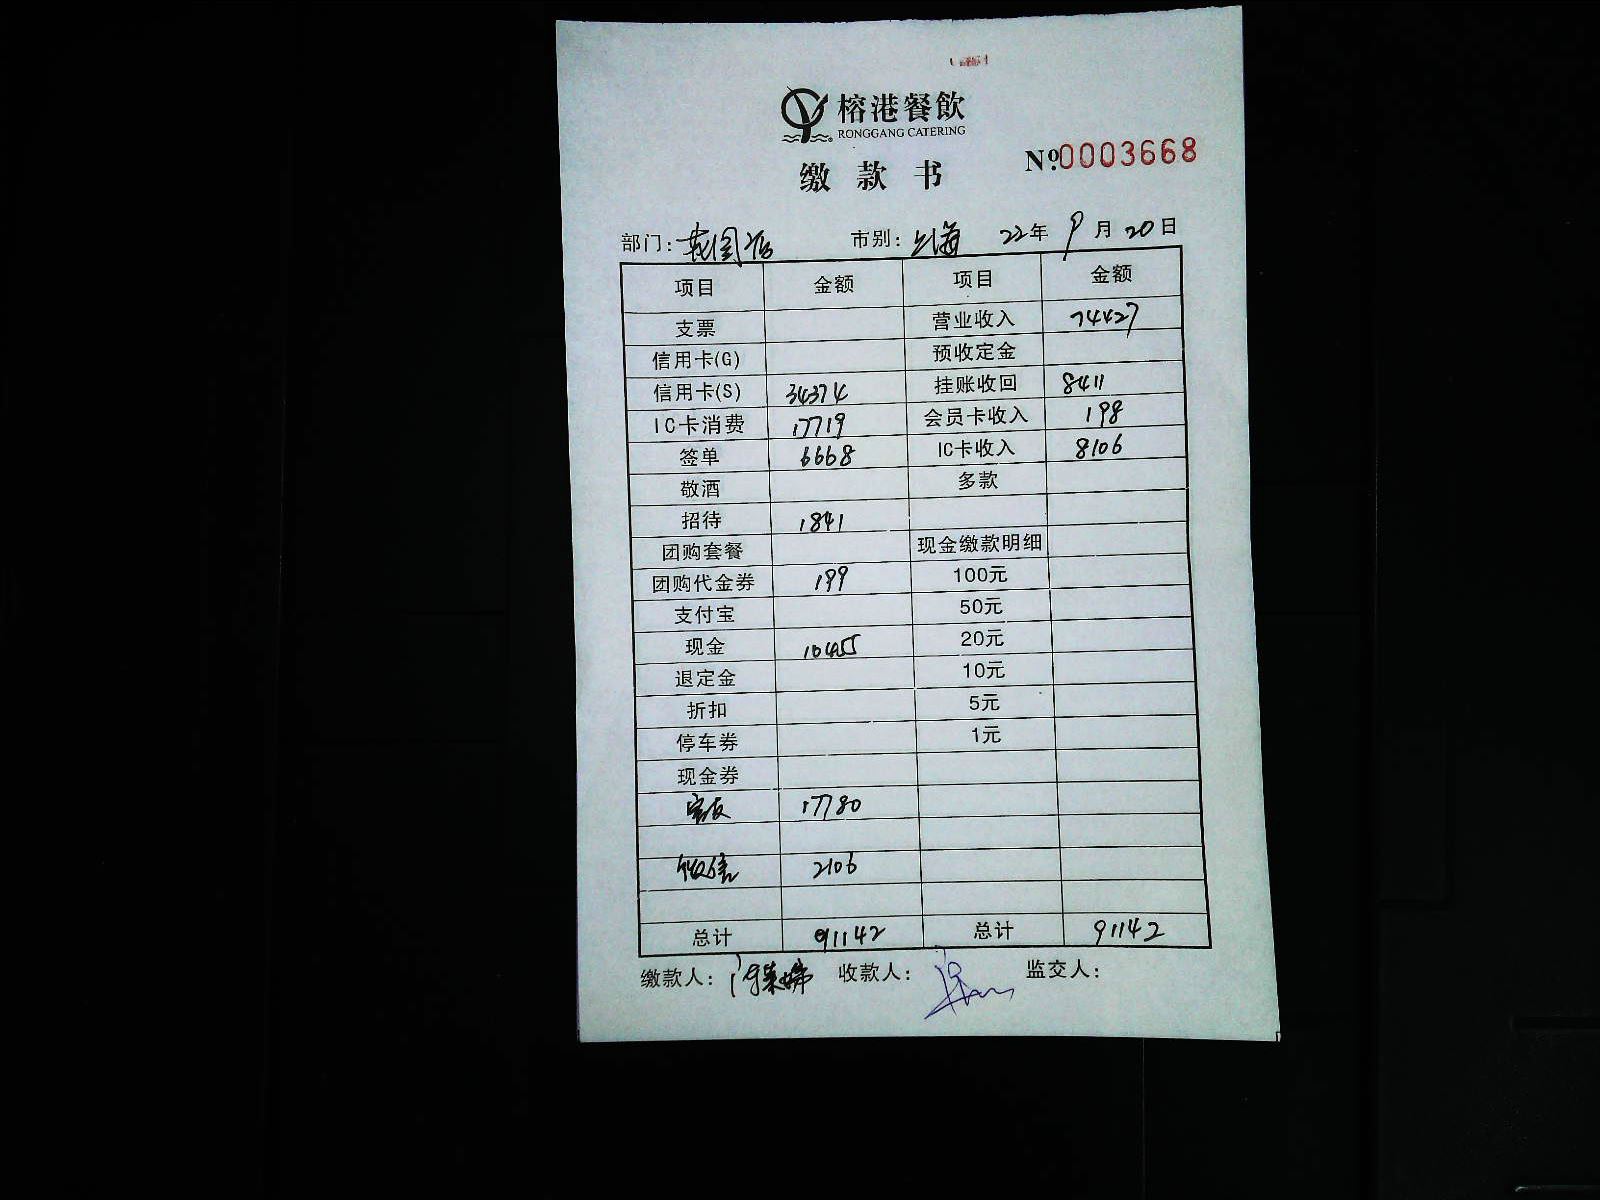 榕港餐飲
RONGGANG CATERING
缴款书 №0003668
部门: 市别: 上海 22年 9月 20日
项目 金额 项目 金额
支票 营业收入 74427
信用卡(G) 预收定金
信用卡(S) 34374 挂账收回 8411
IC卡消费 17719 会员卡收入 198
签单 6668 IC卡收入 8106
敬酒 多款
招待 1841
团购套餐 现金缴款明细
团购代金券 199 100元
支付宝 50元
现金 10455 20元
退定金 10元
折扣 5元
停车券 1元
现金券
17780
微信 2106
总计 91142 总计 91142
缴款人: 收款人: 监交人: